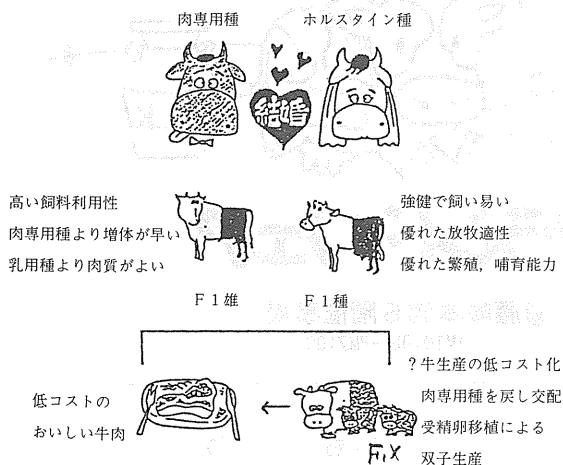 肉専用種
ホルスタイン種
結婚
高い飼料利用性
肉専用種より増体が早い
乳用種より肉質がよい
強健で飼い易い
優れた放牧適性
優れた繁殖，哺育能力
F1雄
F1種
低コストの
おいしい牛肉
?牛生産の低コスト化
肉専用種を戻し交配
受精卵移植による
双子生産
F1X